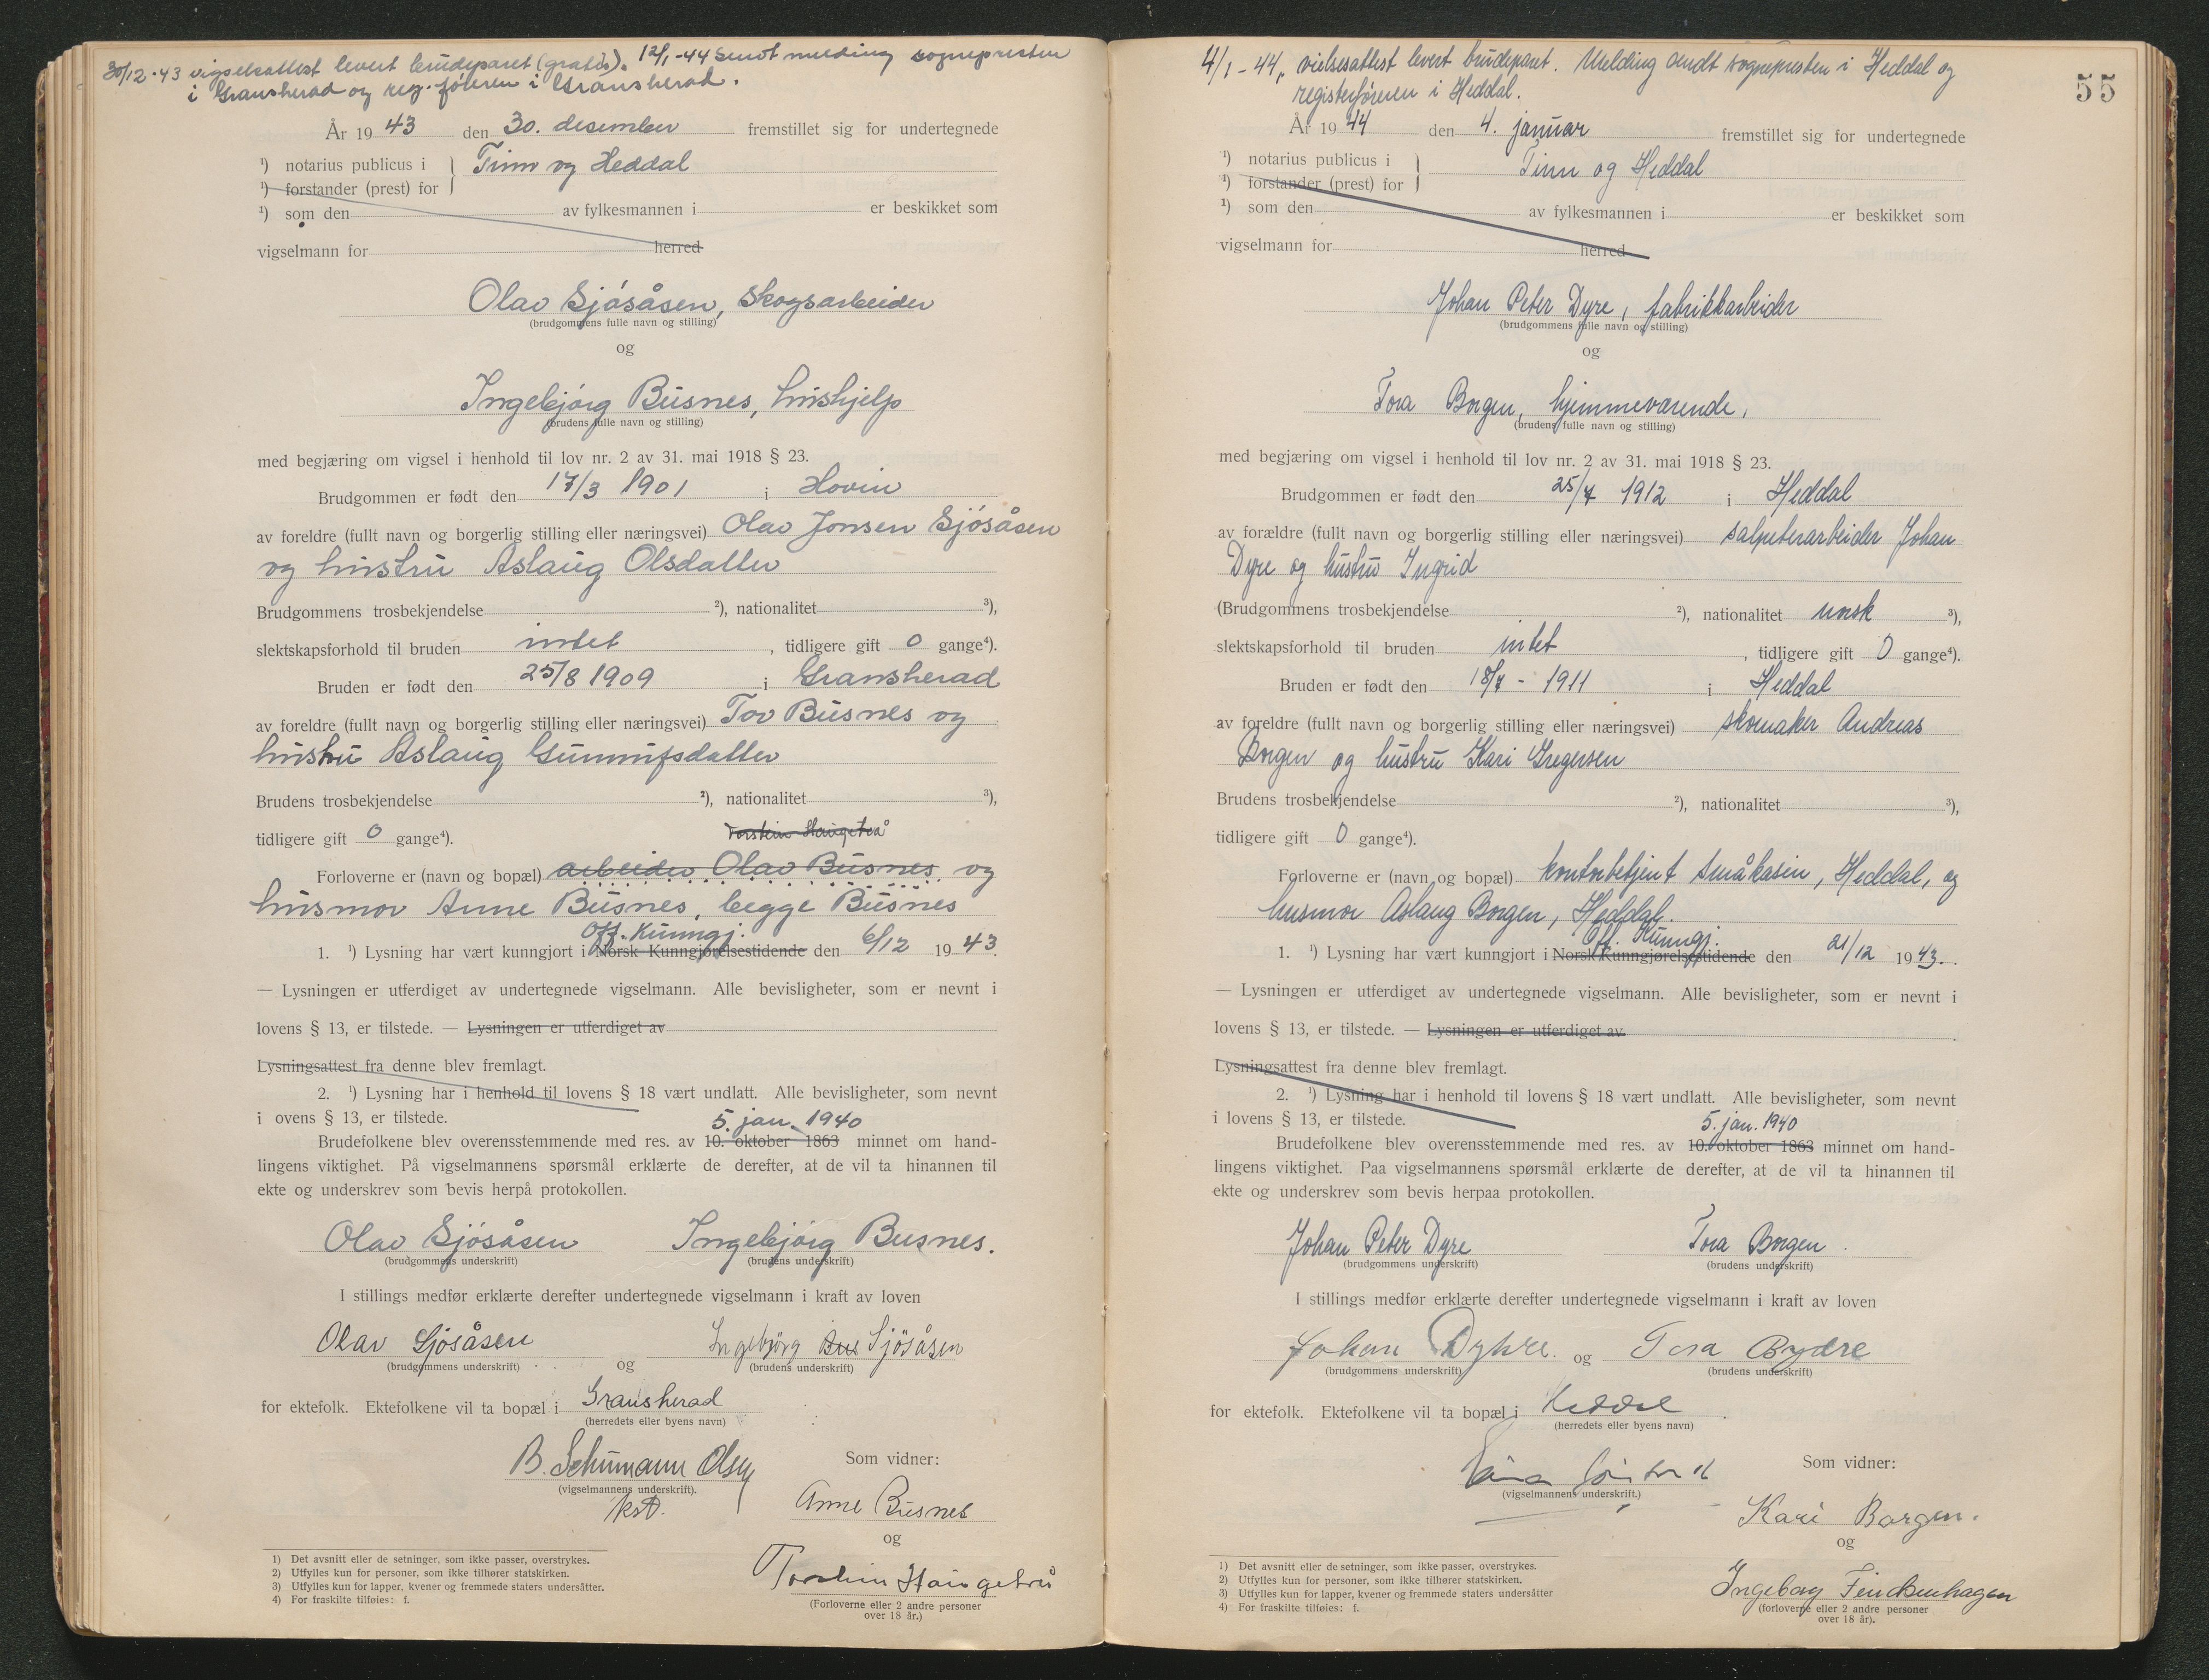 30/12-43 vigselsattest levert brudeparet (gratis). 12/1-44 sendt melding sognepresten
i Gransherad og reg.føreren i Gransherad.
År 19 43 den 30. desember fremstillet sig for undertegnede
¹) notarius publicus i } Tinn og Heddal
¹) forstander (prest) for
¹) som den av fylkesmannen i er beskikket som
vigselmann for herred
Olav Sjósåsen, skogsarbeider
(brudgommens fulle navn og stilling)
og
Ingebjórg Busnes, hushjelp
(brudens fulle navn og stilling)
med begjæring om vigsel i henhold til lov nr. 2 av 31. mai 1918 § 23.
Brudgommen er født den 17/3 1901 i Hovin
av foreldre (fullt navn og borgerlig stilling eller næringsvei) Olav Jonsen Sjósåsen
og hustru Aslaug Olsdatter
Brudgommens trosbekjendelse ²), nationalitet ³),
slektskapsforhold til bruden intet, tidligere gift 0 gange⁴).
Bruden er født den 25/8 1909 i Gransherad
av foreldre (fullt navn og borgerlig stilling eller næringsvei) Tov Busnes og
hustru Aslaug Gunnulfsdatter
Brudens trosbekjendelse ²), nationalitet ³),
Torstein Haugetrå
tidligere gift 0 gange⁴).
Forloverne er (navn og bopæl) arbeider Olav Busnes og
husmor Anne Busnes, begge Busnes
Off. Kunngj.
1. ¹) Lysning har vært kunngjort i Norsk Kunngjørelsestidende den 6/12 19 43.
— Lysningen er utferdiget av undertegnede vigselmann. Alle bevisligheter, som er nevnt i
lovens § 13, er tilstede. — Lysningen er utferdiget av
Lysningsattest fra denne blev fremlagt.
2. ¹) Lysning har i henhold til lovens § 18 vært undlatt. Alle bevisligheter, som nevnt
i ovens § 13, er tilstede.
5. jan. 1940
Brudefolkene blev overensstemmende med res. av 10. oktober 1863 minnet om hand-
lingens viktighet. På vigselmannens spørsmål erklærte de derefter, at de vil ta hinannen til
ekte og underskrev som bevis herpå protokollen.
Olav Sjósåsen Ingebjórg Busnes.
(brudgommens underskrift) (brudens underskrift)
I stillings medfør erklærte derefter undertegnede vigselmann i kraft av loven
Olav Sjósåsen og Ingebjörg Bus Sjösåsen
(brudgommens underskrift) (brudens underskrift)
for ektefolk. Ektefolkene vil ta bopæl i Gransherad
(herredets eller byens navn)
B. Schumann Olsen
(vigselmannens underskrift).
kst.
Som vidner:
Anne Busnes
og
Torstein Haugetrå
(Forloverne eller 2 andre personer
over 18 år.)
1) Det avsnitt eller de setninger, som ikke passer, overstrykes.
2) Utfylles kun for personer, som ikke tilhører statskirken.
3) Utfylles kun for lapper, kvener og fremmede staters undersåtter.
4) For fraskilte tilføies: f.
55
4/1-44, vielsesattest levert brudeparet. Melding sendt sognepresten i Heddal og
registerføreren i Heddal.
År 19 44 den 4. januar fremstillet sig for undertegnede
¹) notarius publicus i } Tinn og Heddal
¹) forstander (prest) for
¹) som den av fylkesmannen i er beskikket som
vigselmann for herred
Johan Peter Dyre, fabrikkarbeider
(brudgommens fulle navn og stilling)
og
Tora Borgen, hjemmeværende,
(brudens fulle navn og stilling)
med begjæring om vigsel i henhold til lov nr. 2 av 31. mai 1918 § 23.
Brudgommen er født den 25/4 1912 i Heddal
av forældre (fullt navn og borgerlig stilling eller næringsvei) salpeterarbeider Johan
Dyre og hustru Ingrid
(Brudgommens trosbekjendelse ²), nationalitet norsk ³),
slektskapsforhold til bruden intet, tidligere gift 0 gange⁴).
Bruden er født den 18/4 - 1911 i Heddal
av foreldre (fullt navn og borgerlig stilling eller næringsvei) skomaker Andreas
Borgen og hustru Kari Gregersen
Brudens trosbekjendelse ²), nationalitet ³),
tidligere gift 0 gange⁴).
Forloverne er (navn og bopæl) kontorbetjent Småkasin, Heddal, og
husmor Aslaug Borgen, Heddal.
Off. Kunngj.
1. ¹) Lysning har vært kunngjort i Norsk Kunngjørelsestidende den 21/12 19 43.
— Lysningen er utferdiget av undertegnede vigselmann. Alle bevisligheter, som er nevnt i
lovens § 13, er tilstede. — Lysningen er utferdiget av
Lysningsattest fra denne blev fremlagt.
2. ¹) Lysning har i henhold til lovens § 18 vært undlatt. Alle bevisligheter, som nevnt
i lovens § 13, er tilstede.
5. jan. 1940
Brudefolkene blev overensstemmende med res. av 10. oktober 1863 minnet om hand-
lingens viktighet. Paa vigselmannens spørsmål erklærte de derefter, at de vil ta hinannen til
ekte og underskrev som bevis herpaa protokollen.
Johan Peter Dyre Tora Borgen
(brudgommens underskrift) (brudens underskrift)
I stillings medfør erklærte derefter undertegnede vigselmann i kraft av loven
Johan Dyhre. og Tora
(brudgommens underskrift) (brudens underskrift)
for ektefolk. Ektefolkene vil ta bopæl i Heddal
(herredets eller byens navn)
(vigselmannens underskrift.)
Som vidner:
Kari Borgen.
og
Ingeborg Finckenhagen
(forloverne eller 2 andre personer
over 18 år).
1) Det avsnitt eller de setninger, som ikke passer, overstrykes.
2) Utfylles kun for personer, som ikke tilhører statskirken.
3) Utfylles kun for lapper, kvener og fremmede staters undersåtter
4) For fraskilte tilføies: f.